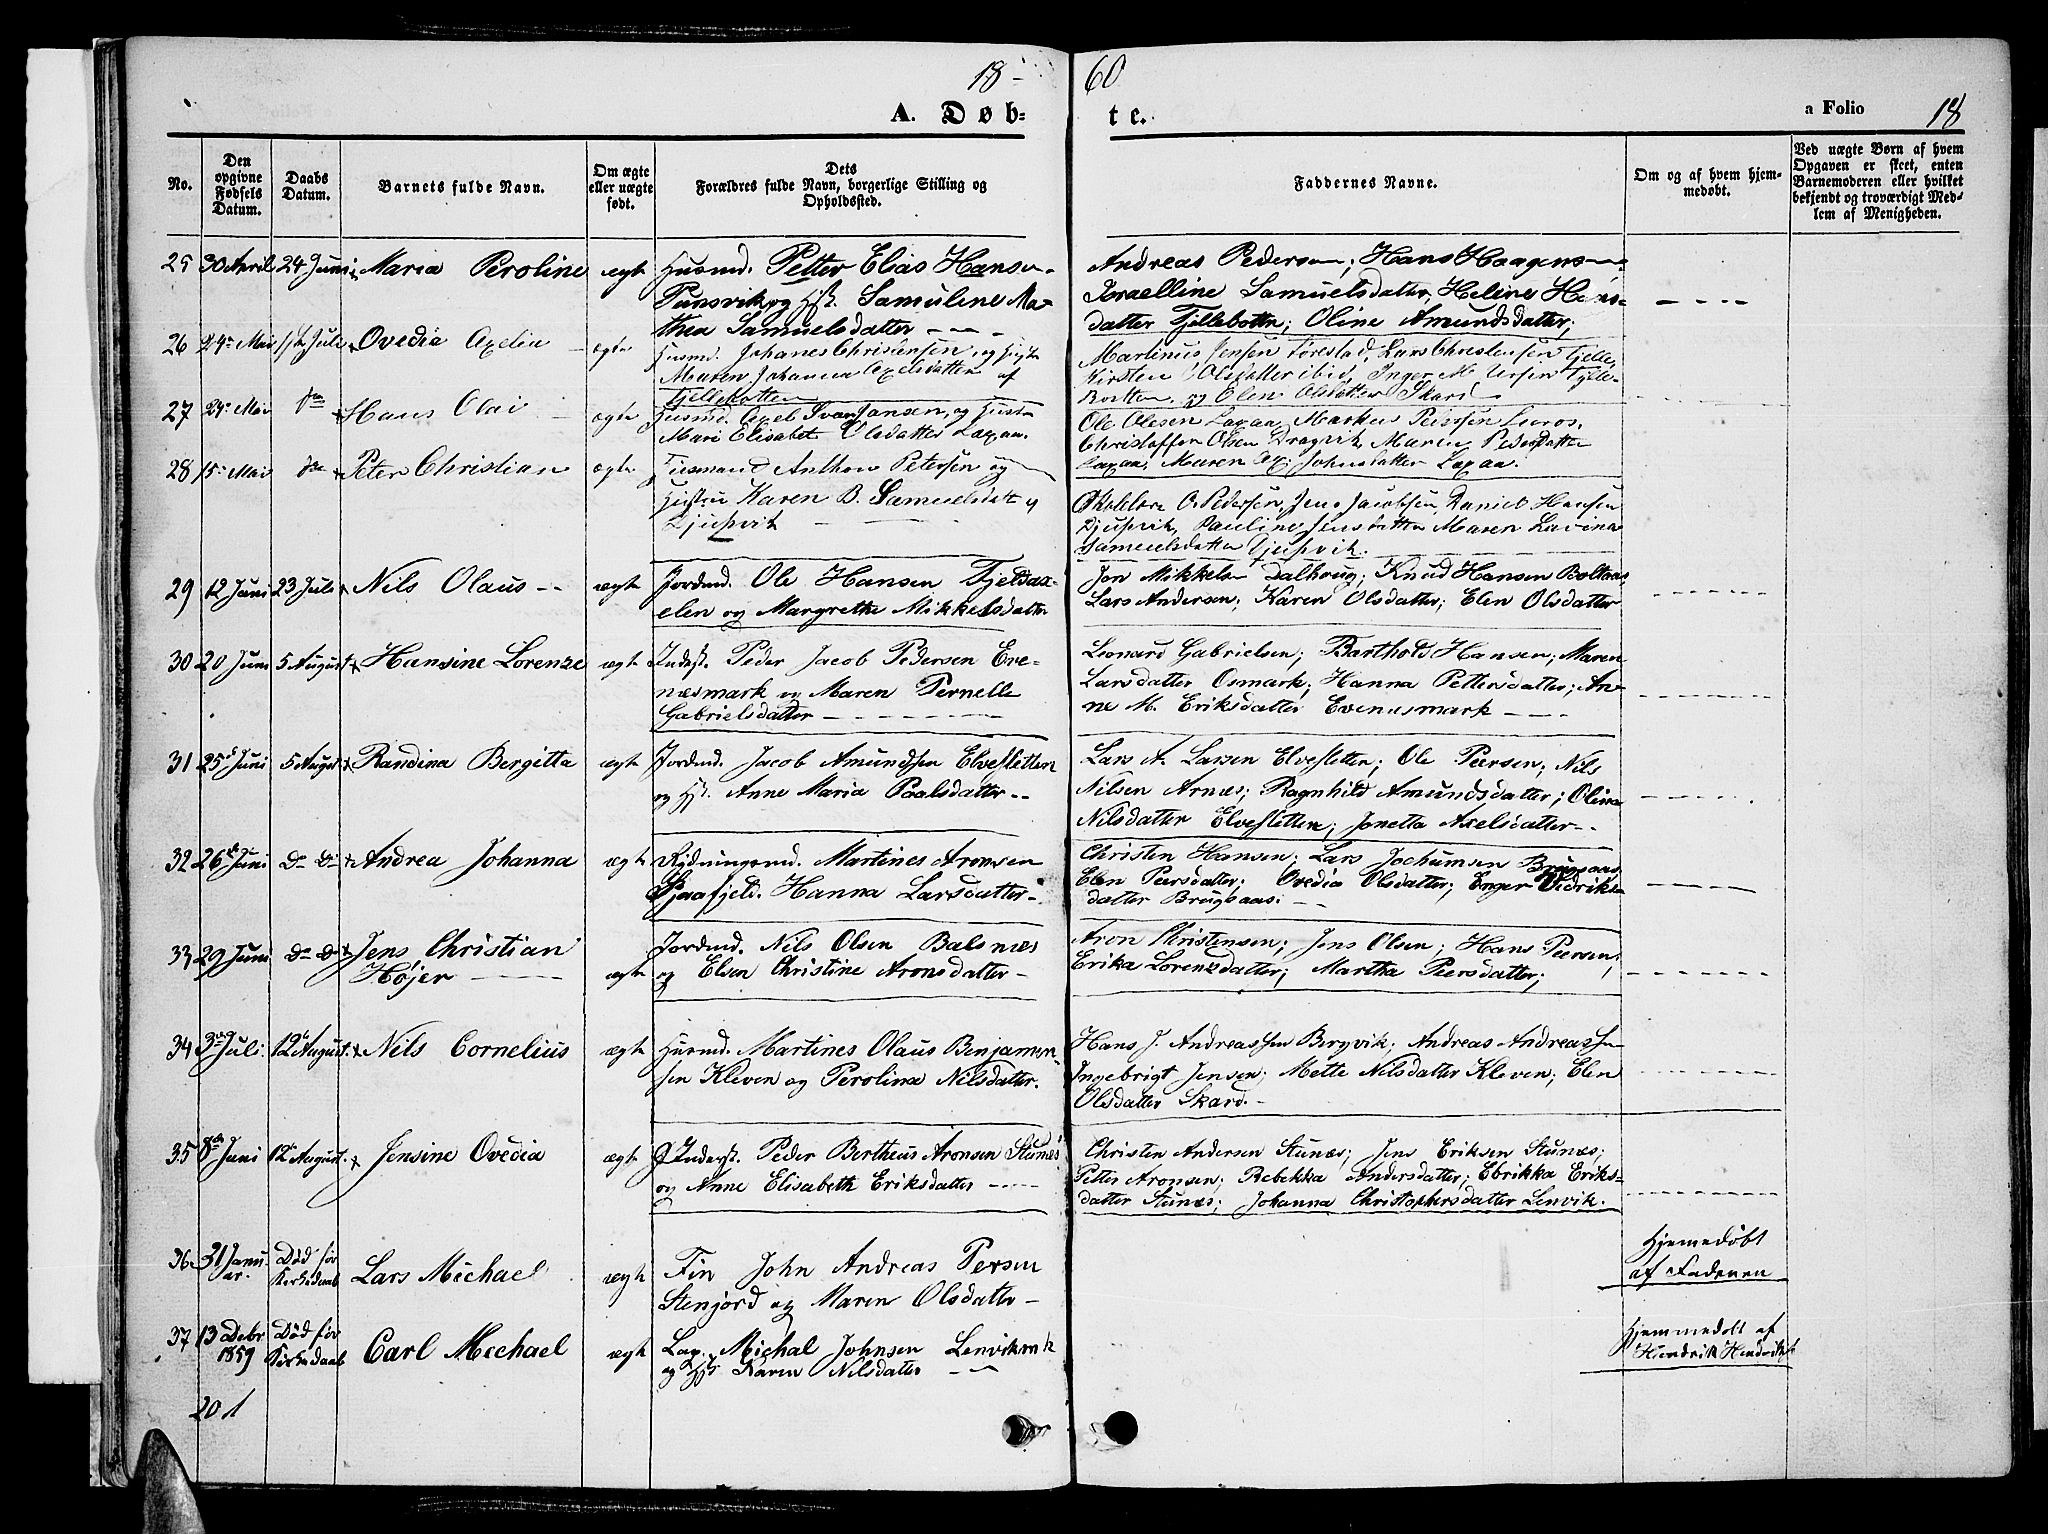 18 - 60
A. Døb- te.
a Folio 18
No.
Den opgivne Fødsels Datum.
Daabs Datum.
Barnets fulde Navn.
Om ægte eller uægte født.
Dets Forældres fulde Navn, borgerlige Stilling og Opholdssted.
Faddernes Navne.
Om og af hvem hjemmedøbt.
Ved uægte Børn af hvem Opgaven er skeet, enten Barnemoderen eller hvilket bekjendt og troværdigt Medlem af Menigheden.
25 30 April 24 Juni Maria Peroline ægte Husmd. Petter Elias Hansen
Andreas Pedersen; Hans Haagensen
og Hst. Samuline Ma-
Israelline Samuelsdatter, Heline Hans-
thea Samuelsdatter
datter Fjellebotten; Oline Amundsdatter;
26 24 Mai 1ste Juli Ovedia Axelia ægte Husmd. Johanes Christensen og
Martinus Jensen Lars Christensen Fjelle
Maren Johanna Axelsdatter af
Kirsten Olsdatter ibid, Inger M.
Fjellebotten
Botten, og Elen Olsdatter Skard
27 24 Mai Hans Olai ægte Husmd. Axel Ivar Jansen, og
Ole Olesen Laxaa, Markus Peersen
Mari Elisabet Olsdatter Laxaa.
Christoffer Olsen Dragvik, Maren Pedersdatter
Laxaa, Maren Ax: Johnsdatter Laxaa.
28 15 Mai Peter Christian ægte Husmand Anthon Petersen og
Hustru Karen B. Samuelsdatt
Djupvik
O. Pedersen, Jens Jacobsen, Daniel Hansen
Djupvik, Pauline Jensdatter Maren Lavina
Samuelsdatter Djupvik.
29 12 Juni 23 Juli Nils Olaus ægte Jordmd. Ole Hansen Fjeldax-
Jon Mikkelsen Dalhoug; Knud Hansen Boltaas
elen og Margrethe Mikkelsdatter
Lars Andersen; Karen Olsdatter; Elen Olsdatter
30 20 Juni 5 August Hansine Lorenze ægte Inderst. Peder Jacob Pedersen Eve-
Leonard Gabrielsen; Barthold Hansen; Maren
næsmark og Maren Pernelle
Larsdatter Osmark; Hanna Pettersdatter; An-
Gabrielsdatter
ne M. Eriksdatter Evenæsmark
31 25de Juni 5 August Randina Bergitta ægte Jordmd. Jacob Amundsen Elvesletten
Lars A. Larsen Elvesletten; Ole Peersen; Nils
og Hst. Anne Maria Paalsdatter
Nilsen Arnæs; Ragnhild Amundsdatter; Olina
Nilsdatter Elvesletten; Jonetta Axelsdatter
32 26de Juni Do Do Andrea Johanna ægte Rydningsmd. Martines Aronsen
Christen Hansen; Lars Jochumsen Brugsaas
Hanna Larsdatter
Elen Peersdatter; Ovedia Olsdatter; Enger Didriks-
datter Brugsaas.
33 29 Juni Do Do Jens Christian ægte Jordmd. Nils Olsen Balsnæs
Aron Christensen; Jens Olsen; Hans Peersen;
Højer
og Elsen Christine Aronsdatter
Erika Lorenzdatter; Martha Peersdatter;
34 3die Juli 12 August. Nils Cornelius ægte Husmd. Martines Olaus Benjamin-
Hans J. Andreassen Bergvik; Andreas Andreassen
sen Kleven og Perolina Nilsdatter.
Ingebrigt Jensen; Mette Nilsdatter Kleven; Elen
Olsdatter Skard.
35 8de Juni 12te August. Jensine Ovedia ægte Inderst. Peder Bertheus Aronsen Stunæs
Christen Andersen Stunæs; Jens Eriksen Stunæs;
og Anne Elisabeth Eriksdatter
Petter Aronsen; Rebekka Andersdatter; Ebrikka Eriks-
datter Stunæs; Johanna Christophersdatter Lenvik.
36 31 Janu- ar. Død før Kirkedaab Lars Michael ægte Fin John Andreas Persen
Stenjord og Maren Olsdatter
Hjemedøbt
af Faderen
37 13 Debr 1859 Død før Kirkedaab Carl Michael ægte Lap. Michal Johnsen Lenvikmk
og Hst Karen Nilsdatter
Hjemmedøbt af
Hendrik
201